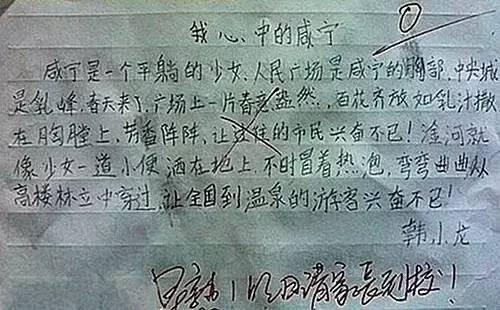 0
我心中的咸宁
咸宁是一个平躺的少女、人民广场是咸宁的胸部、中央城
是乳峰、春天来了、广场上一片春意盎然、百花齐放如乳汁撒
在胸膛上、芳香阵阵、让过往的市民兴奋不已！淦河就
像少女一道小便洒在地上、不时冒着热泡、弯弯曲曲从
高楼林立中穿过、让全国到温泉的游客兴奋不已！
韩小龙
！明日请家长到校！